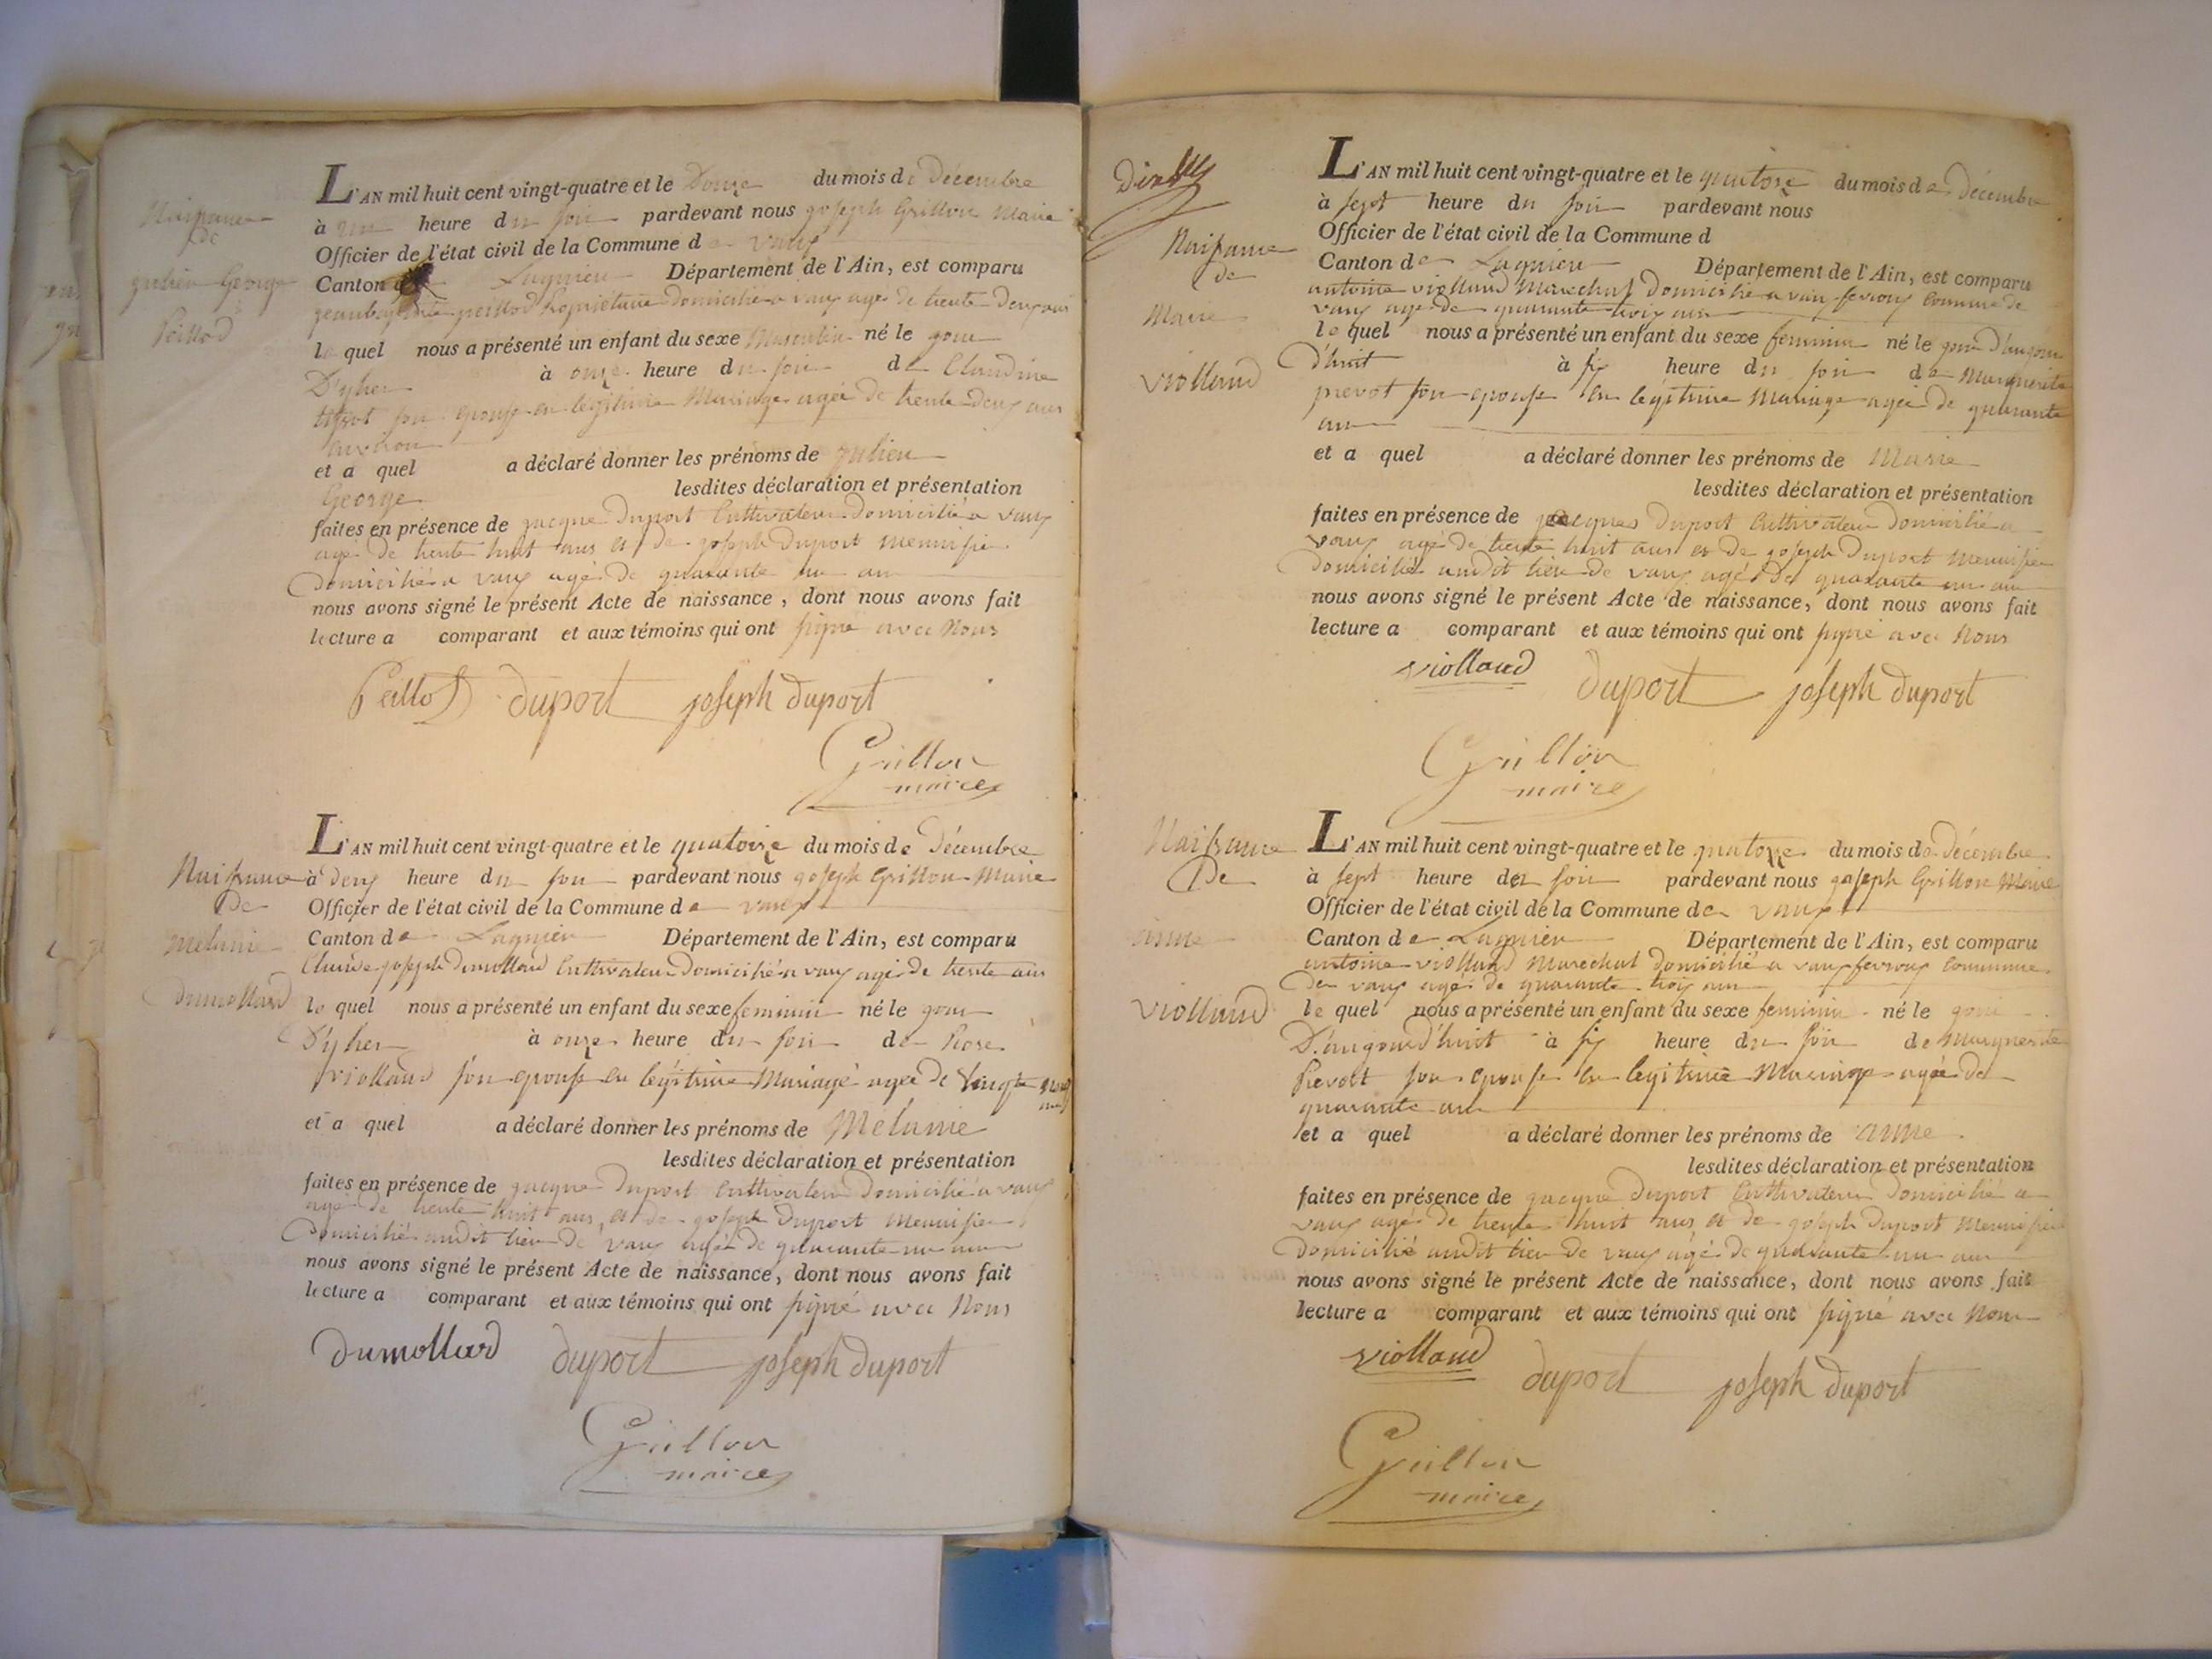 Naissance
de
julien George
Peillod
L'AN mil huit cent vingt-quatre et le Douze du mois de Décembre
à un heure du soir pardevant nous joseph Grillon Maire
Officier de l'état civil de la Commune de vaux
Canton de Lagnieu Département de l'Ain, est comparu
jeanbaptiste peillod Propriétaire domicilié a vaux agé de trente deux ans
le quel nous a présenté un enfant du sexe Masculin né le jour
D'yher à onze heure du soir de Claudine
son epouse en legitime Mariage agée de trente deux ans
environ
et a quel a déclaré donner les prénoms de julien
George lesdites déclaration et présentation
faites en présence de jacque Duport Cultivateur Domicilié a vaux
agé de trente huit ans et de joseph Duport Menuisier
Domicilié a vaux agé de quarante un an
nous avons signé le présent Acte de naissance, dont nous avons fait
lecture a comparant et aux témoins qui ont signé avec Nous
Peillod duport joseph duport
Grillon
maire
Naissance
De
melanie
Dumollard
L'AN mil huit cent vingt-quatre et le quatorze du mois de Décembre
à deux heure du soir pardevant nous joseph Grillon Maire
Officier de l'état civil de la Commune de vaux
Canton de Lagnieu Département de l'Ain, est comparu
Claude joseph Dumollard Cultivateur Domicilié a vaux agé de trente ans
le quel nous a présenté un enfant du sexe feminin né le jour
D'yher à onze heure du soir de Rose
violland son epouse en legitime Mariage agée de vingt neuf
ans
et a quel a déclaré donner les prénoms de Mélanie
lesdites déclaration et présentation
faites en présence de jacque Duport Cultivateur Domicilié a vaux
agé de trente huit ans et de joseph Duport Menuisier
Domicilié audit lieu de vaux agé de quarante un an
nous avons signé le présent Acte de naissance, dont nous avons fait
lecture a comparant et aux témoins qui ont signé avec Nous
dumollard duport joseph duport
Grillon
maire
Naissance
de
Marie
violland
L'AN mil huit cent vingt-quatre et le quatorze du mois de Décembre
à sept heure du soir pardevant nous
Officier de l'état civil de la Commune d
Canton de Lagnieu Département de l'Ain, est comparu
antoine violland Marechal Domicilié a vaux fevroux Commune de
vaux agé de quarante trois ans
le quel nous a présenté un enfant du sexe feminin né le jour d'aujour
d'huit à six heure du soir de Marguerite
prevot son epouse en legitime Mariage agée de quarante
an
et a quel a déclaré donner les prénoms de Marie
lesdites déclaration et présentation
faites en présence de jacques Duport Cultivateur Domicilié a
vaux agé de trente huit ans et de joseph Duport Menuisier
Domicilié audit lieu de vaux agé de quarante un an
nous avons signé le présent Acte de naissance, dont nous avons fait
lecture a comparant et aux témoins qui ont signé avec Nous
violland duport joseph duport
Grillon
maire
Naissance
De
anne
violland
L'AN mil huit cent vingt-quatre et le quatorze du mois de décembre
à sept heure du soir pardevant nous joseph Grillon Maire
Officier de l'état civil de la Commune de vaux
Canton de Lagnieu Département de l'Ain, est comparu
antoine violland Marechal Domicilié a vaux fevroux Commune
De vaux agé de quarante trois ans
le quel nous a présenté un enfant du sexe feminin né le jour
D'aujourd'huit à six heure du soir de Marguerite
Prevott son epouse en legitime Mariage agée de
quarante ans
et a quel a déclaré donner les prénoms de anne
lesdites déclaration et présentation
faites en présence de jacque Duport Cultivateur Domicilié a
vaux agé de trente huit ans et de joseph Duport Menuisier
Domicilié audit lieu de vaux agé de quarante un an
nous avons signé le présent Acte de naissance, dont nous avons fait
lecture a comparant et aux témoins qui ont signé avec Nous
violland duport joseph duport
Grillon
maire